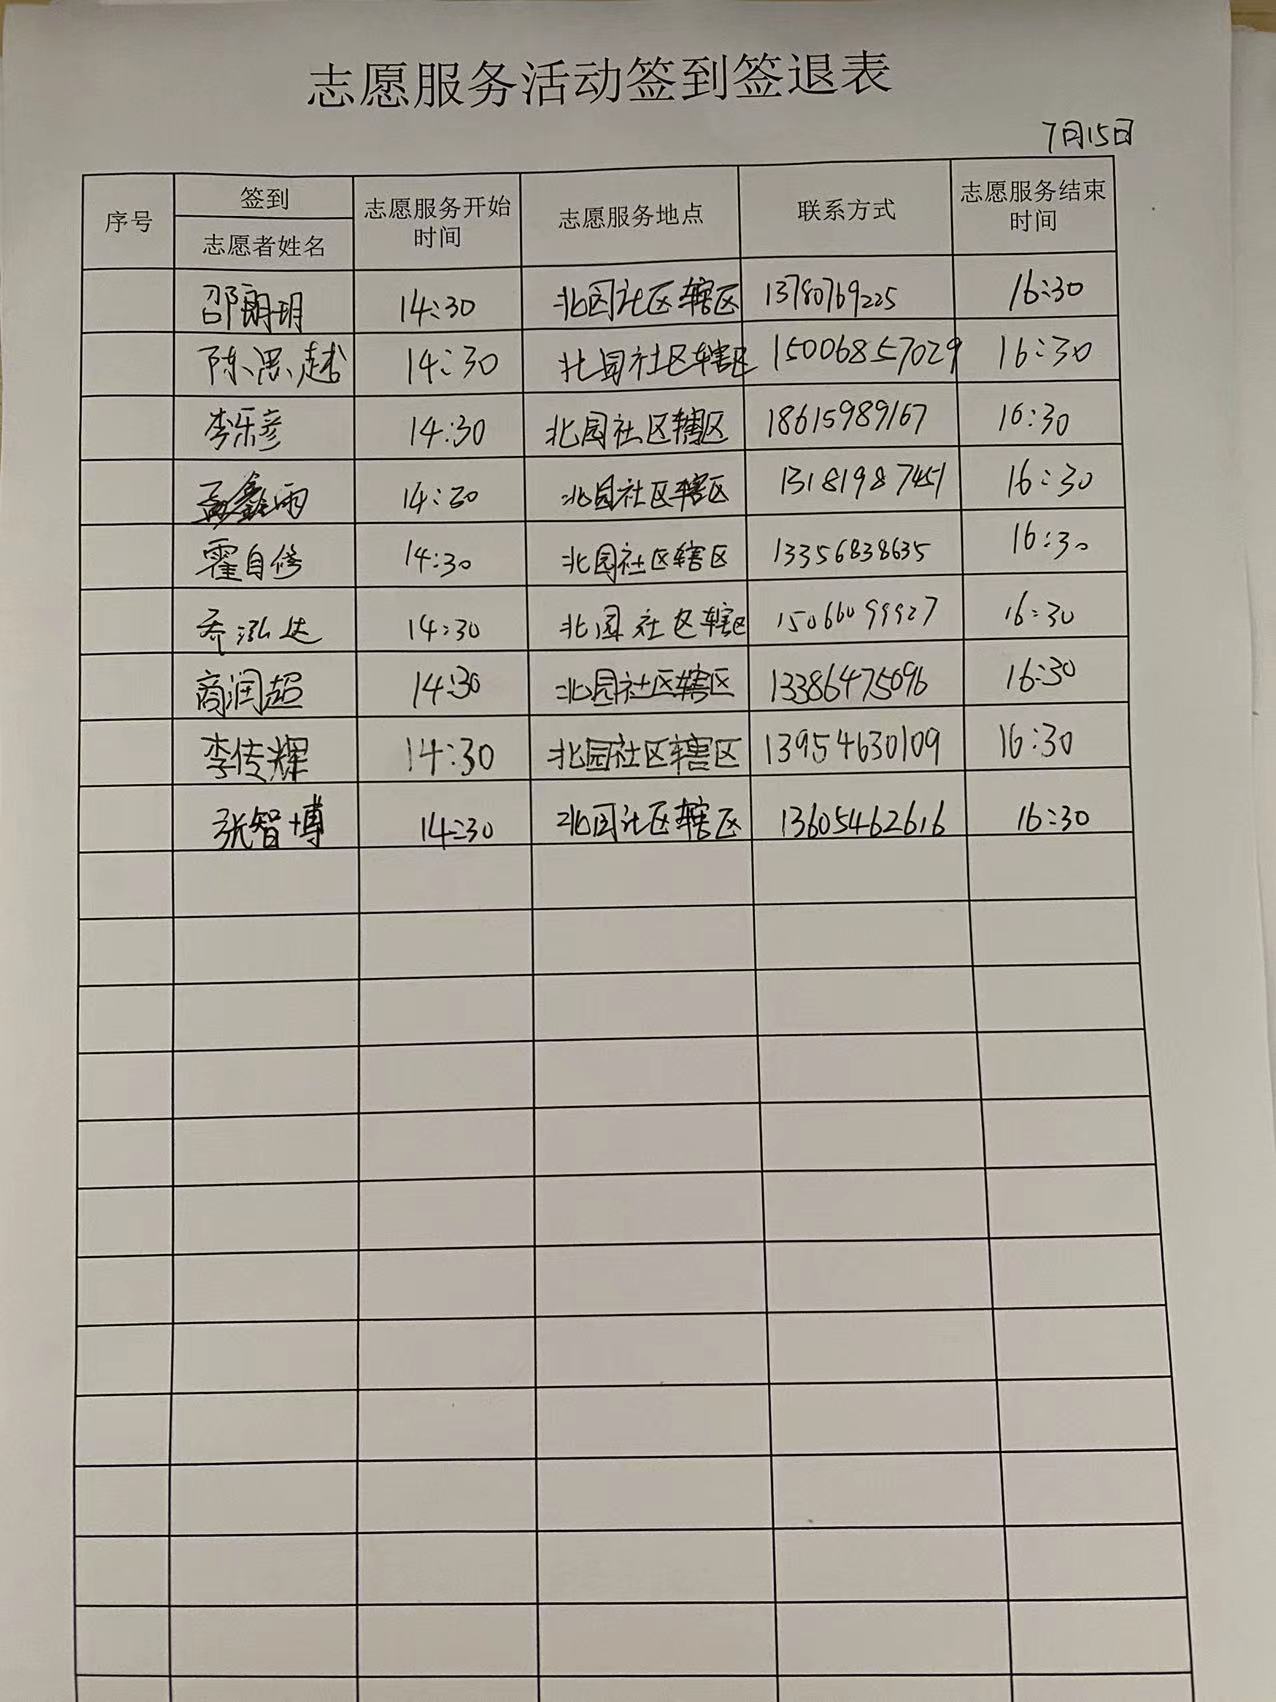 志愿服务活动签到签退表
7月15日
序号 签到 志愿者姓名 志愿服务开始时间 志愿服务地点 联系方式 志愿服务结束时间
邵朗玥 14:30 北园社区辖区 13780769225 16:30
陈思越 14:30 北园社区辖区 15006857029 16:30
李乐彦 14:30 北园社区辖区 18615989167 16:30
孟鑫雨 14:30 北园社区辖区 13181987451 16:30
霍自修 14:30 北园社区辖区 13356838635 16:30
乔泓达 14:30 北园社区辖区 15066099927 16:30
商润超 14:30 北园社区辖区 13386475096 16:30
李传辉 14:30 北园社区辖区 13954630109 16:30
张智博 14:30 北园社区辖区 13605462616 16:30